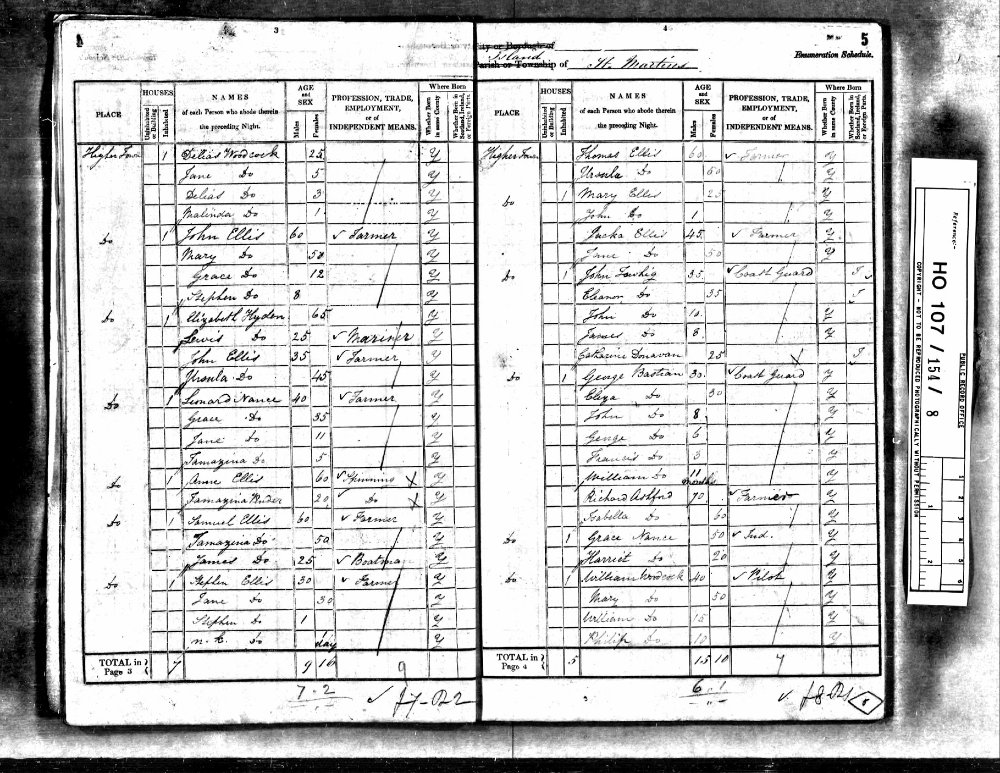 3
PLACE HOUSES Uninhabited or Building Inhabited NAMES of each Person who abode therein the preceding Night. AGE and SEX Males Females PROFESSION, TRADE, EMPLOYMENT, or of INDEPENDENT MEANS. Where Born Whether Born in same County Whether Born in Scotland, Ireland, or Foreign Parts.
Higher Town 1 Delias Woodcock 25 Y
Jane Do 5 Y
Delias Do 3 Y
Malinda Do 1 Y
Do 1 John Ellis 60 Farmer Y
Mary Do 50 Y
Grace Do 12 Y
Stephen Do 8 Y
Do 1 Elizabeth Hyden 65 Y
Lewis Do 25 Mariner Y
John Ellis 35 Farmer Y
Ursula Do 45 Y
Do 1 Leonard Nance 40 Farmer Y
Grace Do 35 Y
Jane Do 11 Y
Tamazina Do 5 Y
Do 1 Anne Ellis 60 Spinning Y
Tamazina 20 Do Y
Do 1 Samuel Ellis 60 Farmer Y
Tamazina Do 50 Y
James Do 25 Boatman Y
Do 1 Stephen Ellis 30 Farmer Y
Jane Do 30 Y
Stephen Do 1 Y
n.k. Do day Y
TOTAL in Page 3 7 9 16 9
7.2
4
5
City or Borough of
Enumeration Schedule.
Island
Parish or Township of St. Martins
PLACE HOUSES Uninhabited or Building Inhabited NAMES of each Person who abode therein the preceding Night. AGE and SEX Males Females PROFESSION, TRADE, EMPLOYMENT, or of INDEPENDENT MEANS. Where Born Whether Born in same County Whether Born in Scotland, Ireland, or Foreign Parts.
Higher Town Thomas Ellis 60 Farmer Y
Ursula Do 60 Y
Do 1 Mary Ellis 25 Y
John Do 1 Y
Ellis 45 Farmer Y
Jane Do 50 Y
Do 1 John 35 Coast Guard I
Eleanor Do 35 I
John Do 10 Y
James Do 8 Y
Catharine Donavan 25 I
Do 1 George Bastian 30 Coast Guard Y
Eliza Do 30 Y
John Do 8 Y
George Do 6 Y
Francis Do 3 Y
William Do 11 months Y
Richard Ashford 70 Farmer Y
Isabella Do 60 Y
Do 1 Grace Nance 50 Ind. Y
Harriet Do 20 Y
Do 1 William Woodcock 40 Pilot Y
Mary Do 50 Y
William Do 15 Y
Philip Do 10 Y
TOTAL in Page 4 5 15 10 7
6.1
Reference:-
HO 107/154/8
PUBLIC RECORD OFFICE
COPYRIGHT - NOT TO BE REPRODUCED PHOTOGRAPHICALLY WITHOUT PERMISSION
1 2 3 4 5 6
1 2